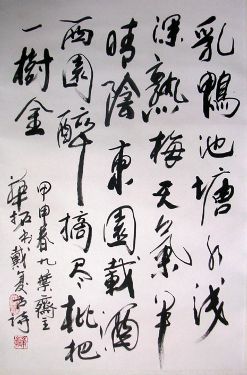 乳鴨池塘水浅
深熟梅天氣半
晴陰東園載酒
西園醉摘尽枇杷
一樹金
甲申春九華齋主
书戴复古詩